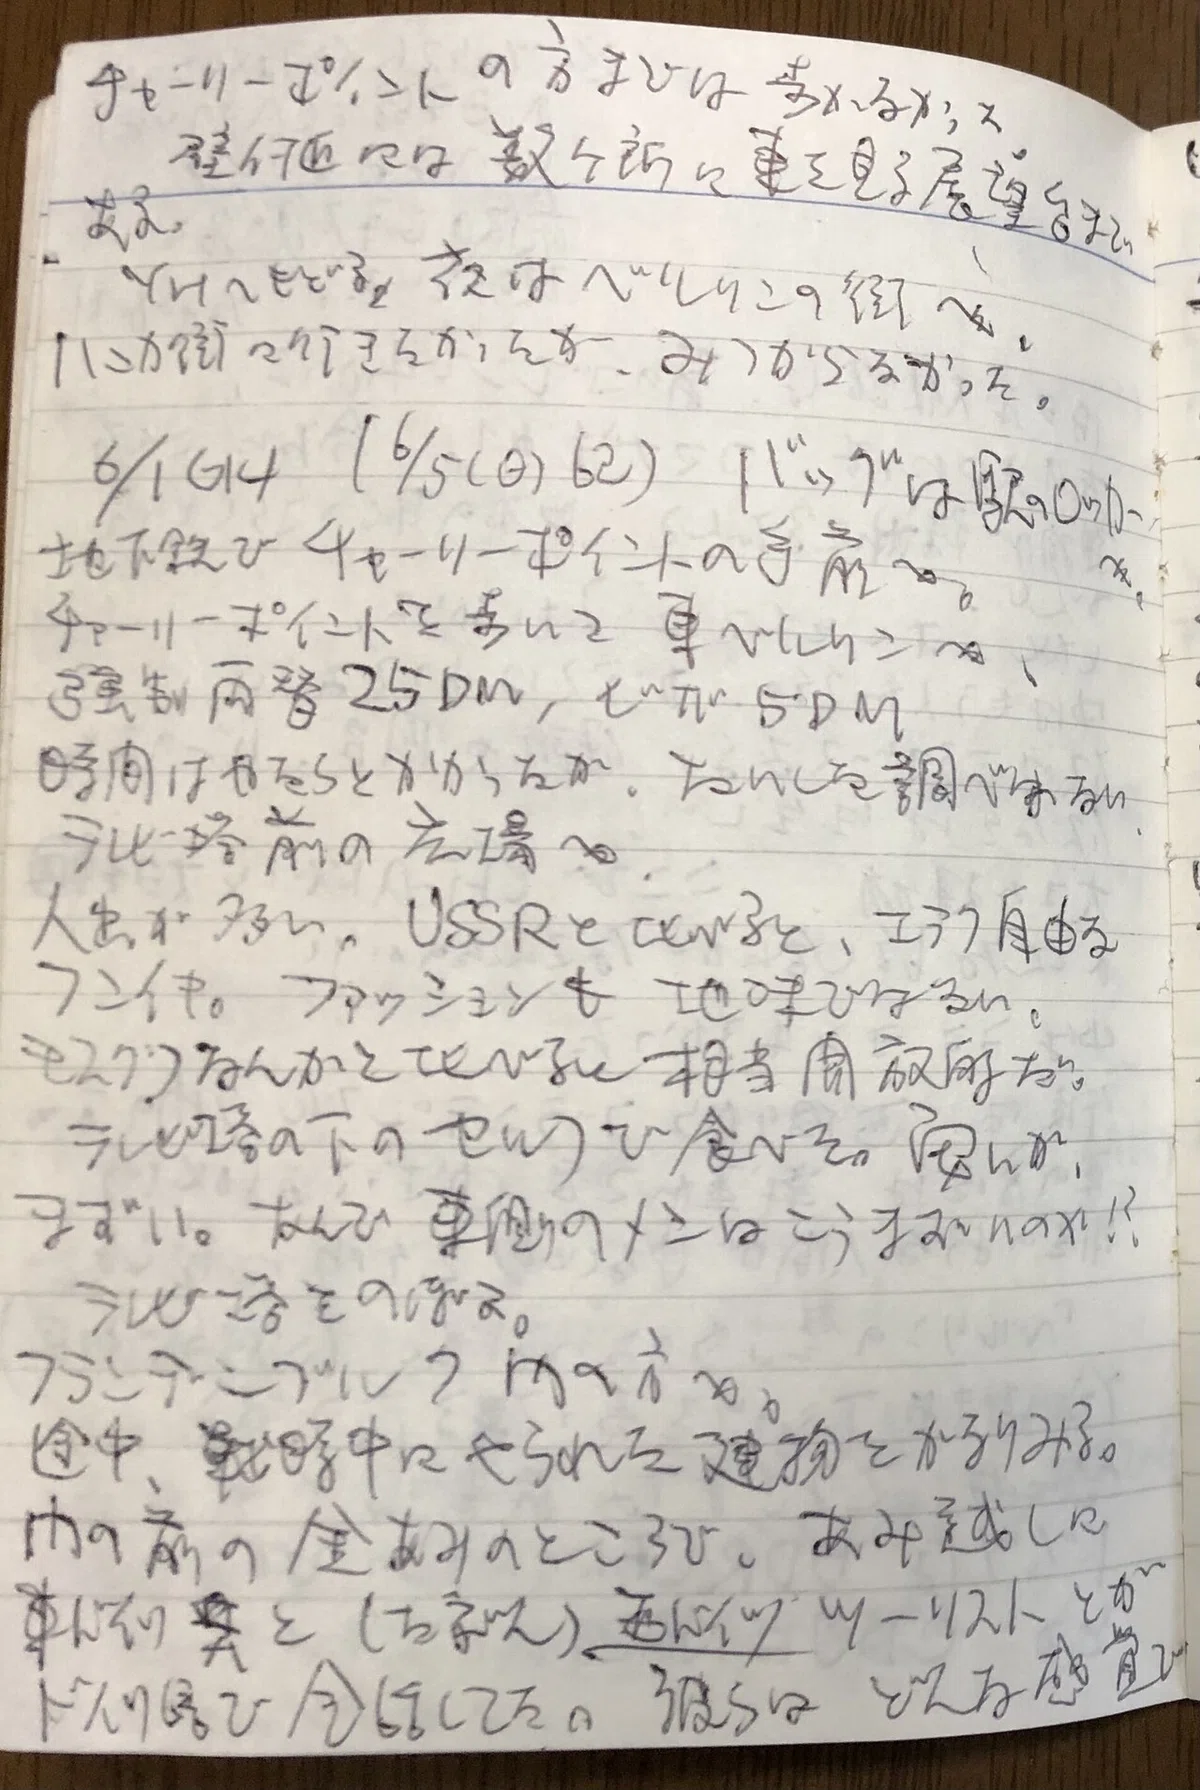 チャーリーポイントの方までは歩かなかった
壁付近には数ヶ所に東を見る展望台まで
ある。
YHへもどる。夜はベルリンの街へ、
ハンが街に行きたかったが、みつからなかった。
6/1 (6/5(日)記) バッグは駅のロッカー
へ。
地下鉄でチャーリーポイントの手前へ。
チャーリーポイントを歩いて東ベルリンへ、
強制両替25DM, ビザ5DM
時間はやたらとかかったが、たいした調べはない、
テレビ塔前の広場へ
人出が多い。USSRと比べると、エラク自由な
フンイキ。ファッションも地味ではない。
モスクワなんかと比べると相当開放的だ。
テレビ塔の下のセルフで食べる。安いが、
まずい。なんで東側のメシはこうまずいのか!?
テレビ塔をのぼる。
ブランデンブルク門の方へ。
途中、戦時中にやられた建物をかなりみる。
門の前の金あみのところで、あみ越しに
東ドイツ兵と(たぶん)西ドイツツーリストとが
ドイツ語で会話してた。彼らはどんな感覚で